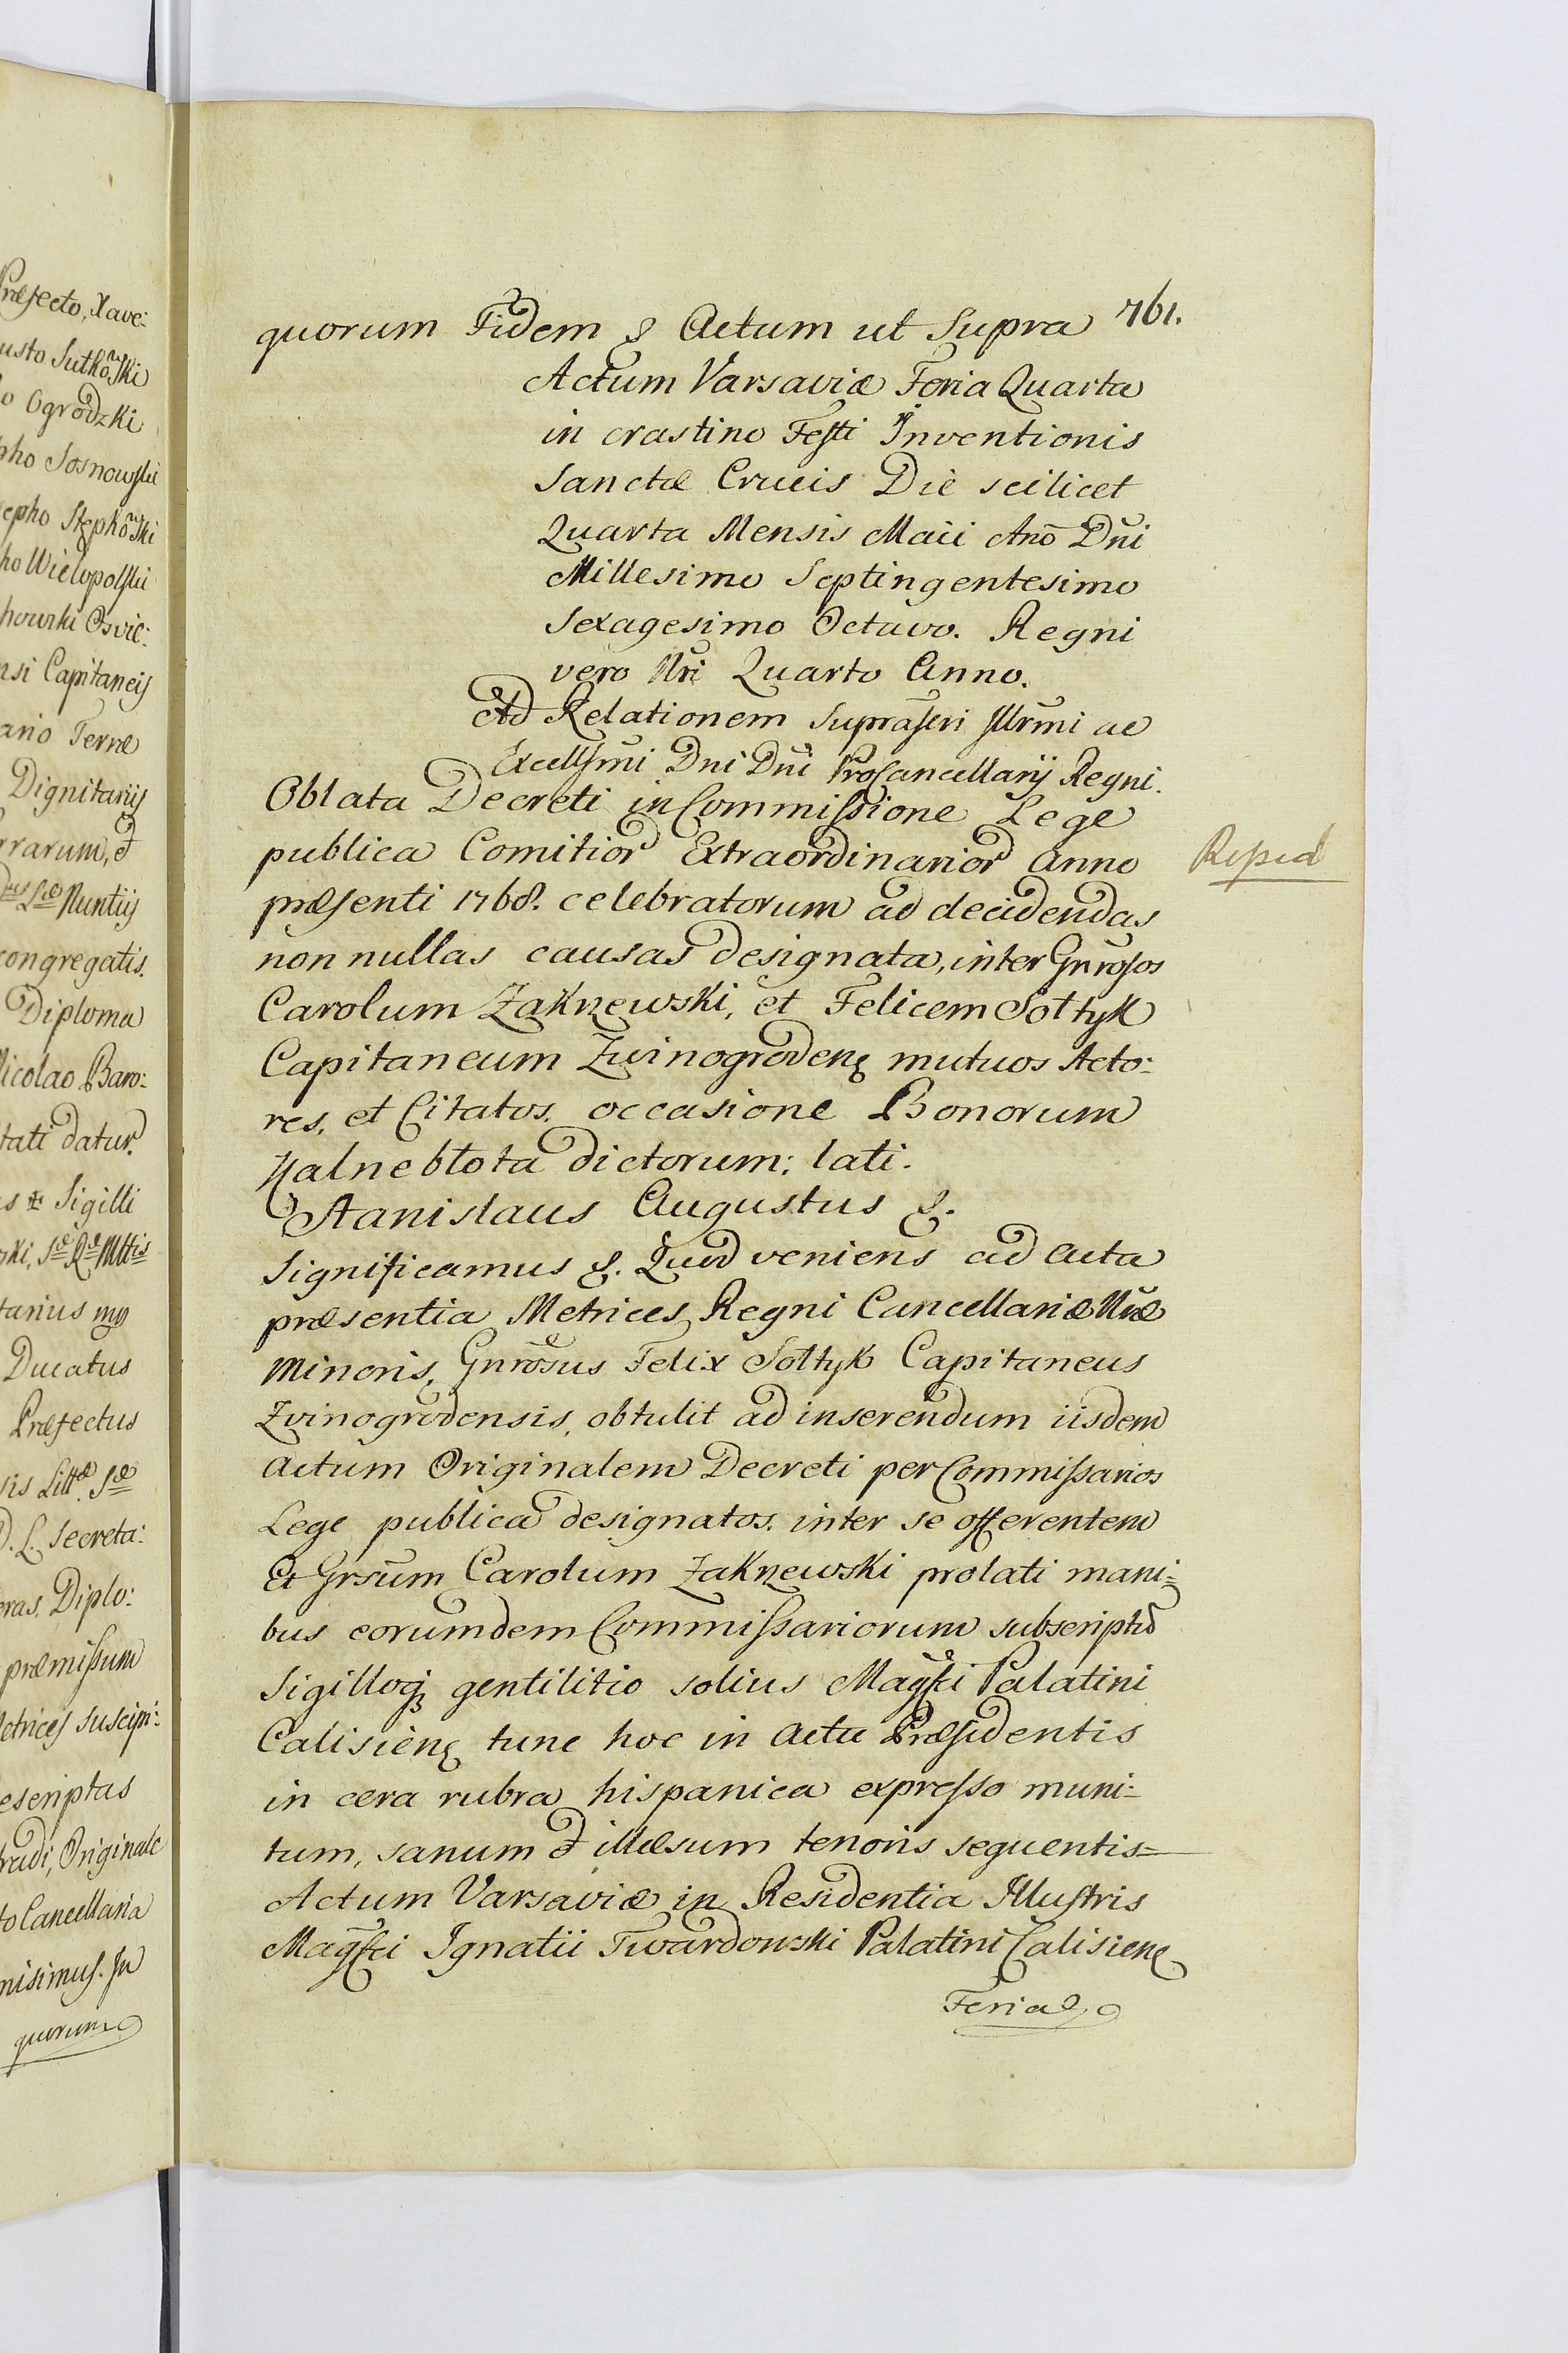 Præfecto, Xave:
usto Sutkõski
o Ogrodzki
pho Sosnowski
epho Stępkõski
ho Wielopolski
howski Osvie:
nsi Capitaneis
ario Terræ
Dignitarijs
rrarum, et
Nuntijs
congregatis.
Diploma
Nicolao Baro:
tati datur.
Sigilli
ski, Sæ Ræ Mttis
tarius mp
Ducatus
Præfectus
sis Littæ Sæ
D. L. Secreta:
eras, Diplo:
præmissum
Metrices suscipi:
escriptas
tradi, Originale
to Cancellaria
misimus. In
quorum
quorum Fidem & Actum ut Supra 761.
Actum Varsaviæ Feria Quarta
in crastino Festi Inventionis
Sanctæ Crucis Die scilicet
Quarta Mensis Maii Anõ Dñi
Millesimo Septingentesimo
Sexagesimo Octavo. Regni
vero Nri Quarto Anno.
Ad Relationem supraseri Illrmi ac
Excellsmi Dni Dni ProCancellarij Regni.
Oblata Decreti in Commissione Lege
publica Comitior Extraordinarior anno
præsenti 1768. celebratorum ad decidendas
non nullas causas designata, inter Gnrosos
Carolum Zakrzewski, et Felicem Sołtyk
Capitaneum Zwinogrodens mutuos Acto:
res, et Citatos, occasione Bonorum
Kalnebłota dictorum; lati.
Stanislaus Augustus &.
Significamus &. Quod veniens ad Acta
præsentia Metrices Regni Cancellariæ Nræ
Minoris, Gnrosus Felix Sołtyk Capitaneus
Zvinogrodensis, obtulit ad inserendum iisdem
Actum Originalem Decreti per Commissarios
Lege publica designatos, inter se offerentem
Et Grsum Carolum Zakrzewski prolati mani:
bus eorumdem Commissariorum subscriptū
Sigilloq; gentilitio solius Magfci Palatini
Calisiens tunc hoc in Actu Præsidentis
in cera rubra hispanica expresso muni:
tum, sanum et illæsum tenoris sequentis =
Actum Varsaviæ in Residentia Illustris
Magfci Ignatii Twardowski Palatini Calisiens
Feria